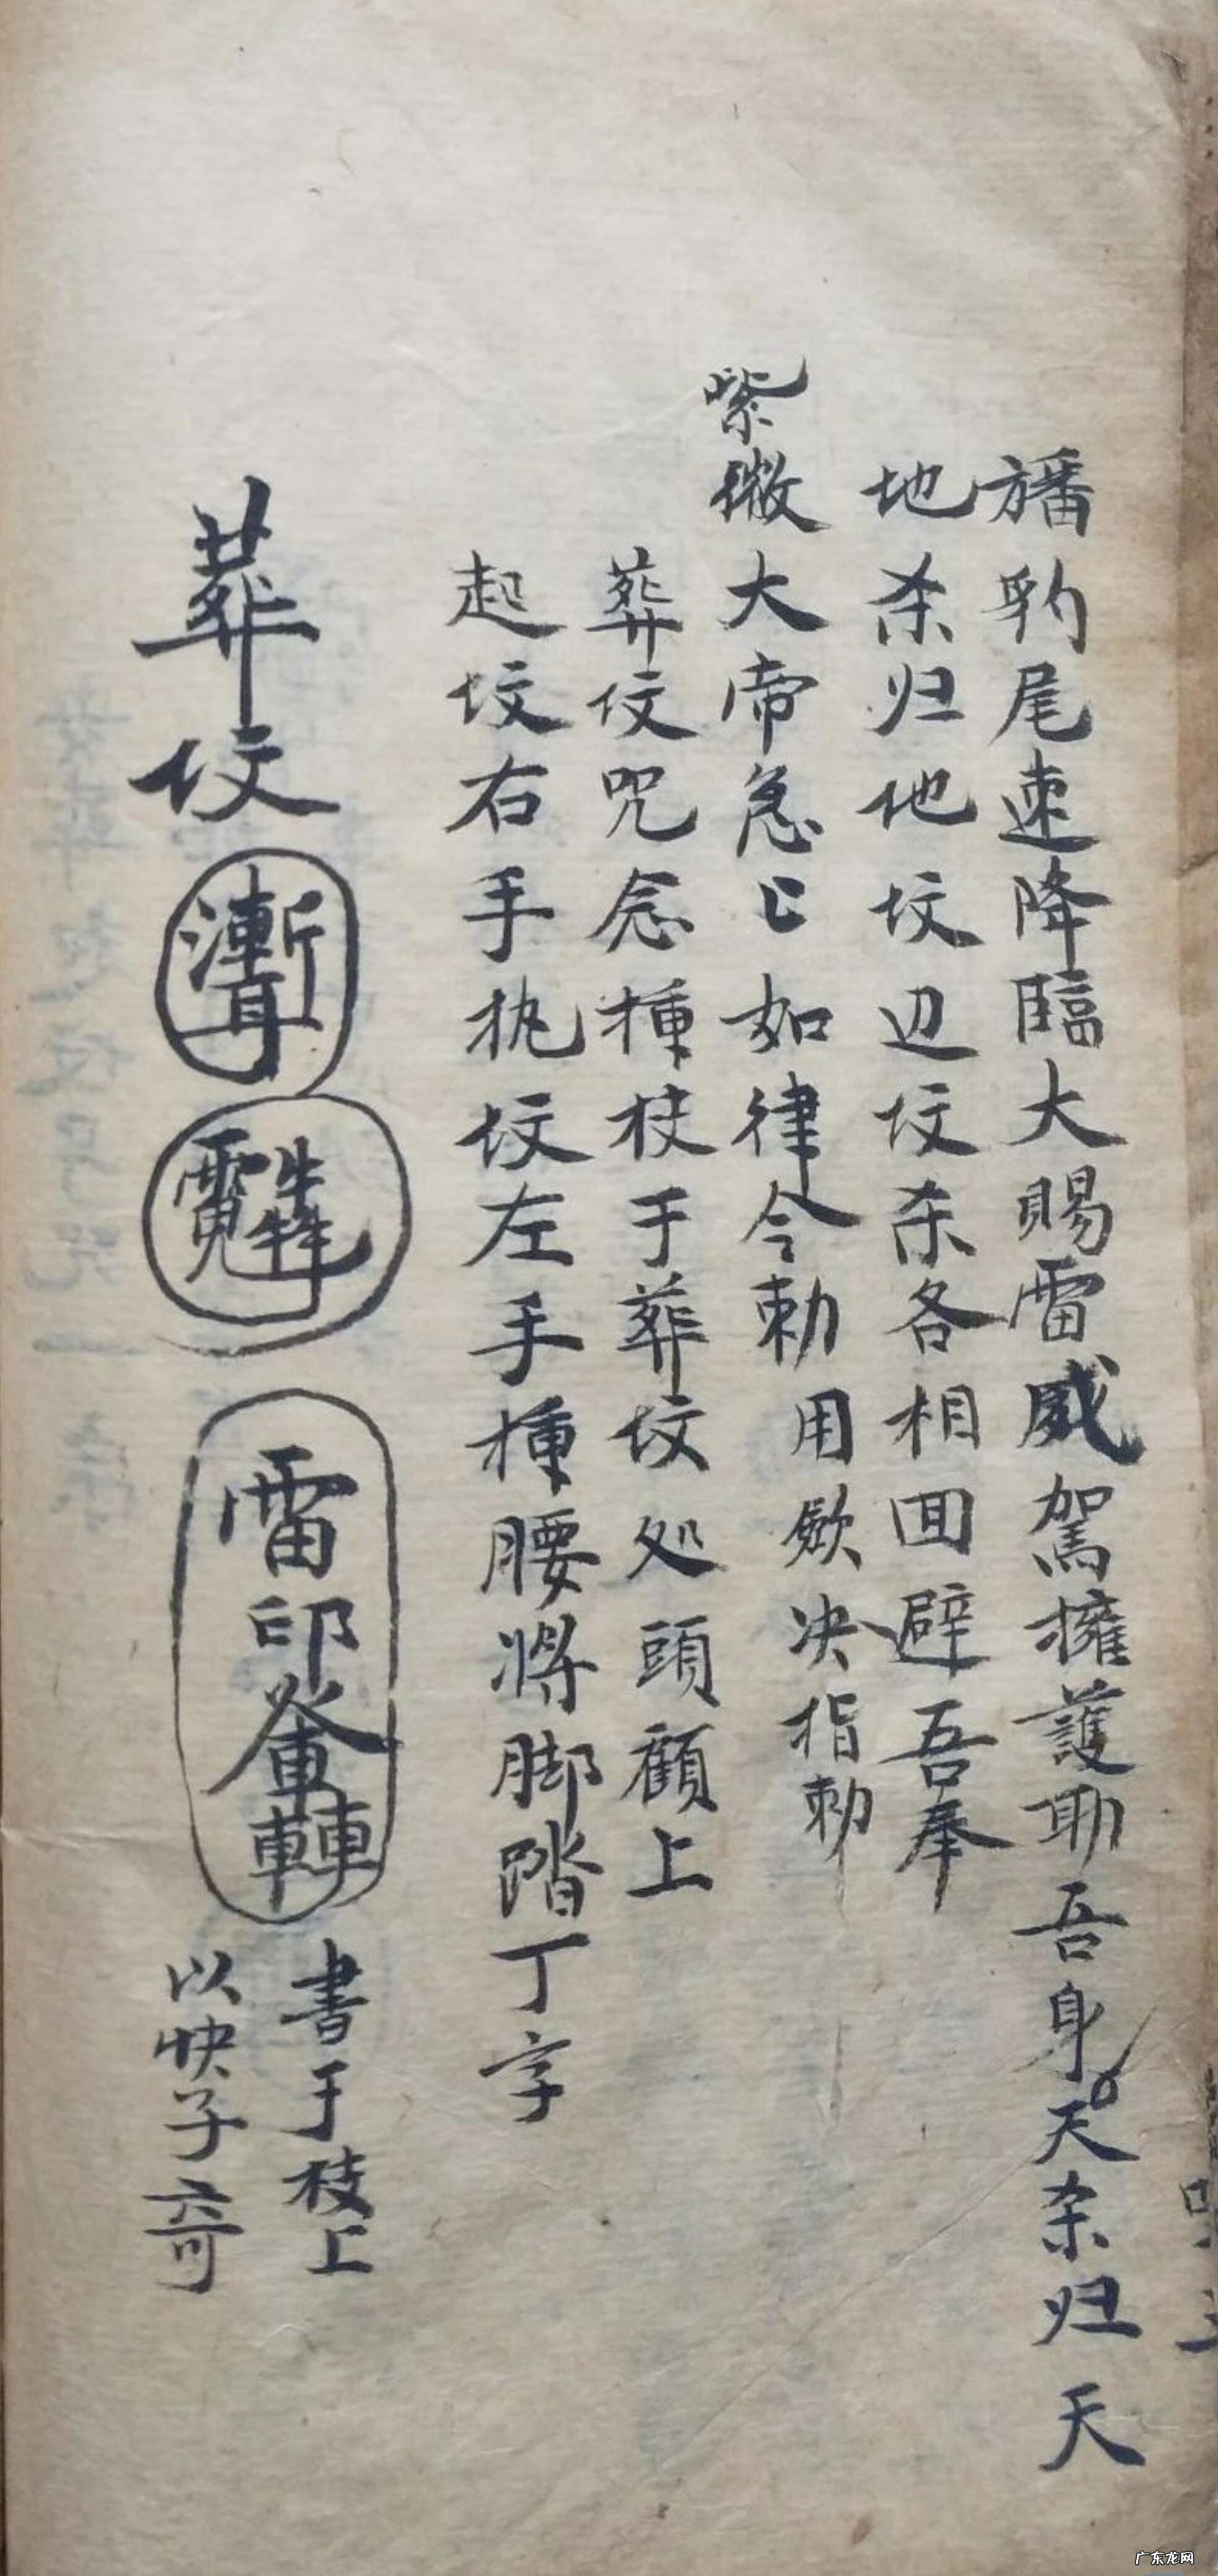 旙豹尾速降臨大賜雷威駕擁護助吾身。天杀归天
地杀归地坟边坟杀各相回避吾奉
紫微大帝急匕如律令勅
用欸决指勅
葬坟咒念種枝于葬坟处頭顧上
起坟右手执坟左手種腰将脚踏丁字
葬坟
雷印
轉
書于枝上
以快子奇
广东龙网